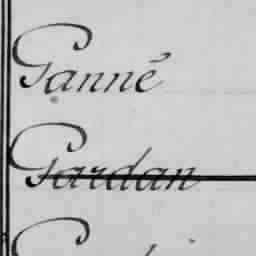 Ganné
Gardan